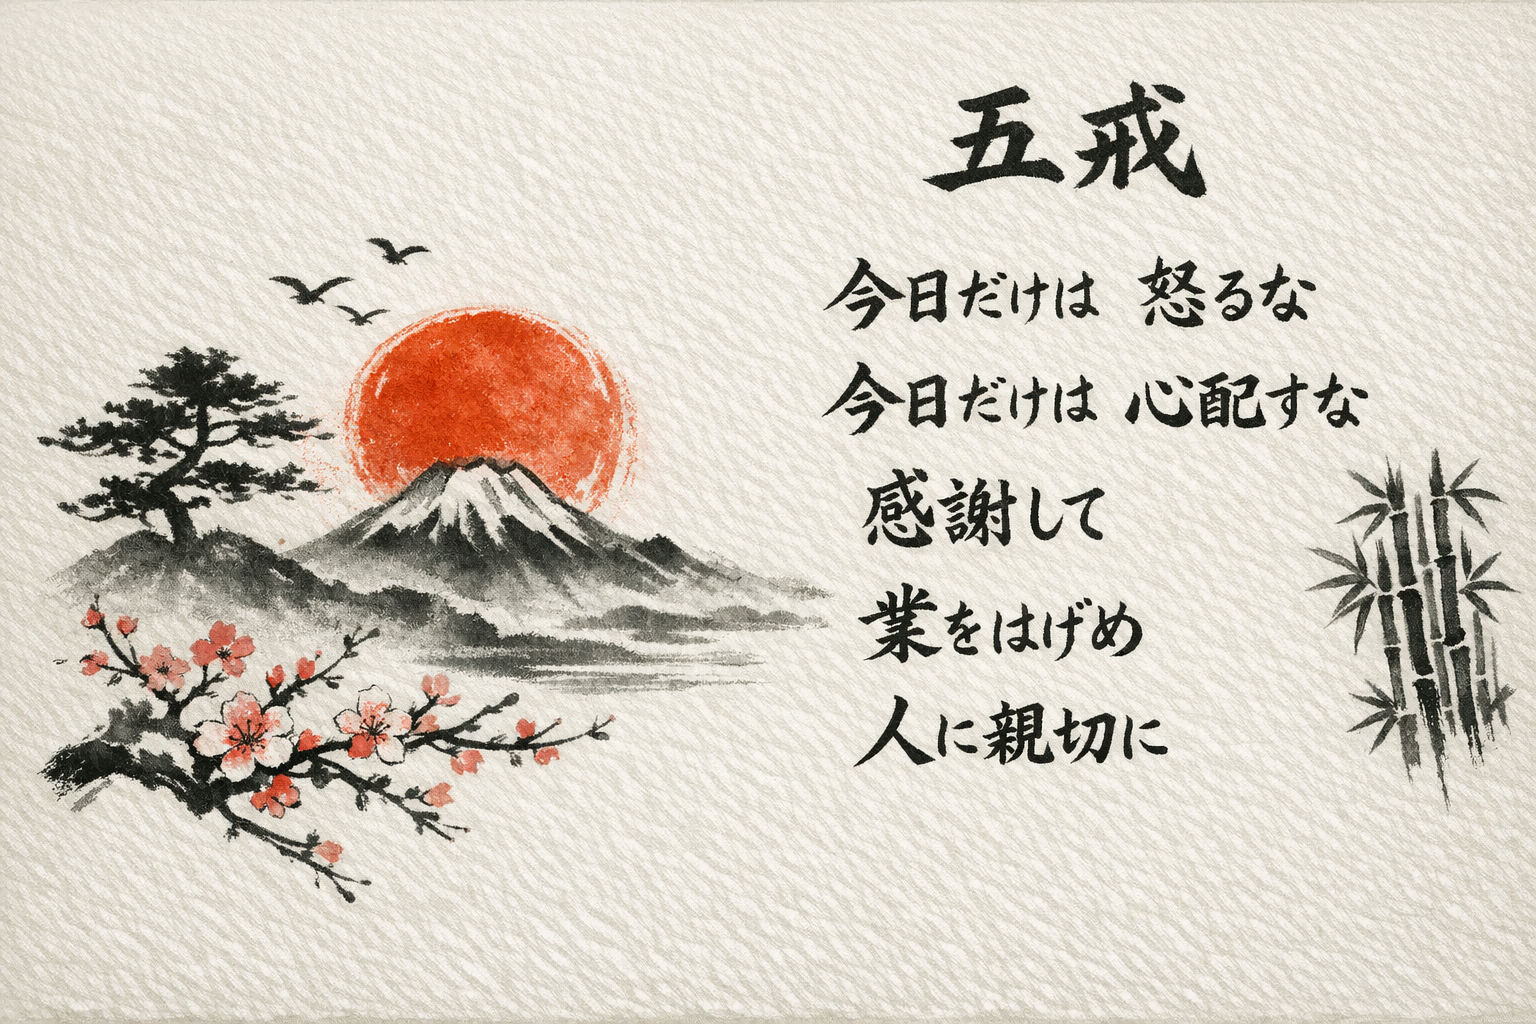 五戒
今日だけは 怒るな
今日だけは 心配すな
感謝して
業をはげめ
人に親切に